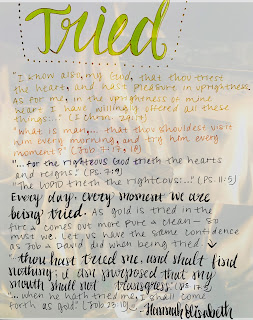 Tried
"I know also, my God, that thou triest
the heart, and hast pleasure in uprightness.
As for me, in the uprightness of mine
heart I have willingly offered all these
things..." (I Chron. 29:17)
"What is man,... that thou shouldest visit
him every morning, and try him every
moment?" (Job 7:17, 18)
"...for the righteous God trieth the hearts
and reigns." (Ps. 7:9)
"The LORD trieth the righteous:..." (Ps. 11:5)
Every day, every moment we are
being tried. As gold is tried in the
fire & comes out more pure & clean - so
must we. Let us have the same confidence
as Job & David did when being tried
"...thou hast tried me, and shalt find
nothing; I am purposed that my
mouth shall not transgress." (Ps. 17:3)
"...when he hath tried me, I shall come
forth as gold." (Job 23:10)
- Hannah Elisabeth